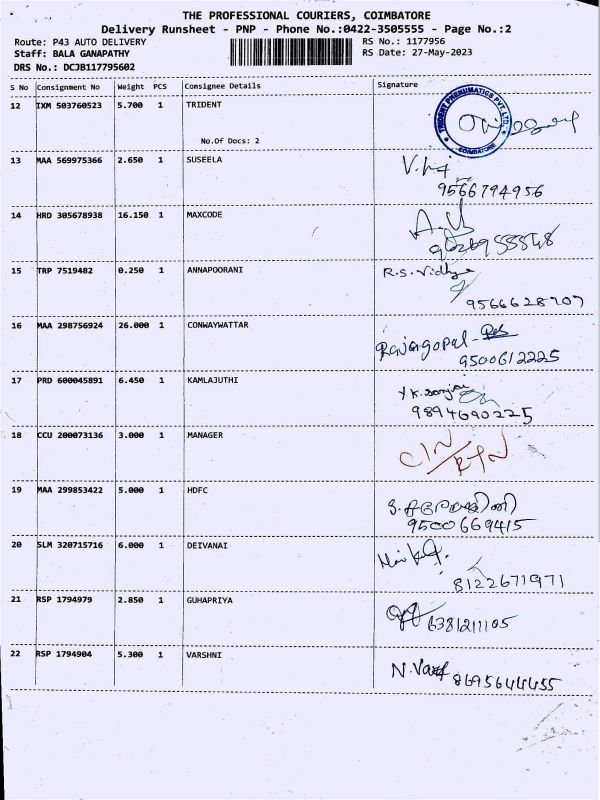 THE PROFESSIONAL COURIERS, COIMBATORE
Delivery Runsheet - PNP - Phone No.:0422-3505555 - Page No.:2
Route: P43 AUTO DELIVERY
RS No.: 1177956
Staff: BALA GANAPATHY
RS Date: 27-May-2023
DRS No.: DCJB117795602
S No Consignment No Weight PCS Consignee Details Signature
12 IXM 503760523 5.700 1 TRIDENT
TRIDENT PNEUMATICS PVT. LTD.
COIMBATORE
No.Of Docs: 2
13 MAA 569975366 2.650 1 SUSEELA
9566794956
14 HRD 305678938 16.150 1 MAXCODE
15 TRP 7519482 0.250 1 ANNAPOORANI R.S. Vidhya
9566628707
16 MAA 298756924 26.000 1 CONWAYWATTAR
Rajagopal -
9500612225
17 PRD 600045891 6.450 1 KAMLAJUTHI Y.K. Sanjai
9894690225
18 CCU 200073136 3.000 1 MANAGER
CIN/RTN
19 MAA 299853422 5.000 1 HDFC
9500669415
20 SLM 320715716 6.000 1 DEIVANAI
8122671971
21 RSP 1794979 2.850 1 GUHAPRIYA
6381211105
22 RSP 1794904 5.300 1 VARSHNI
8695644455